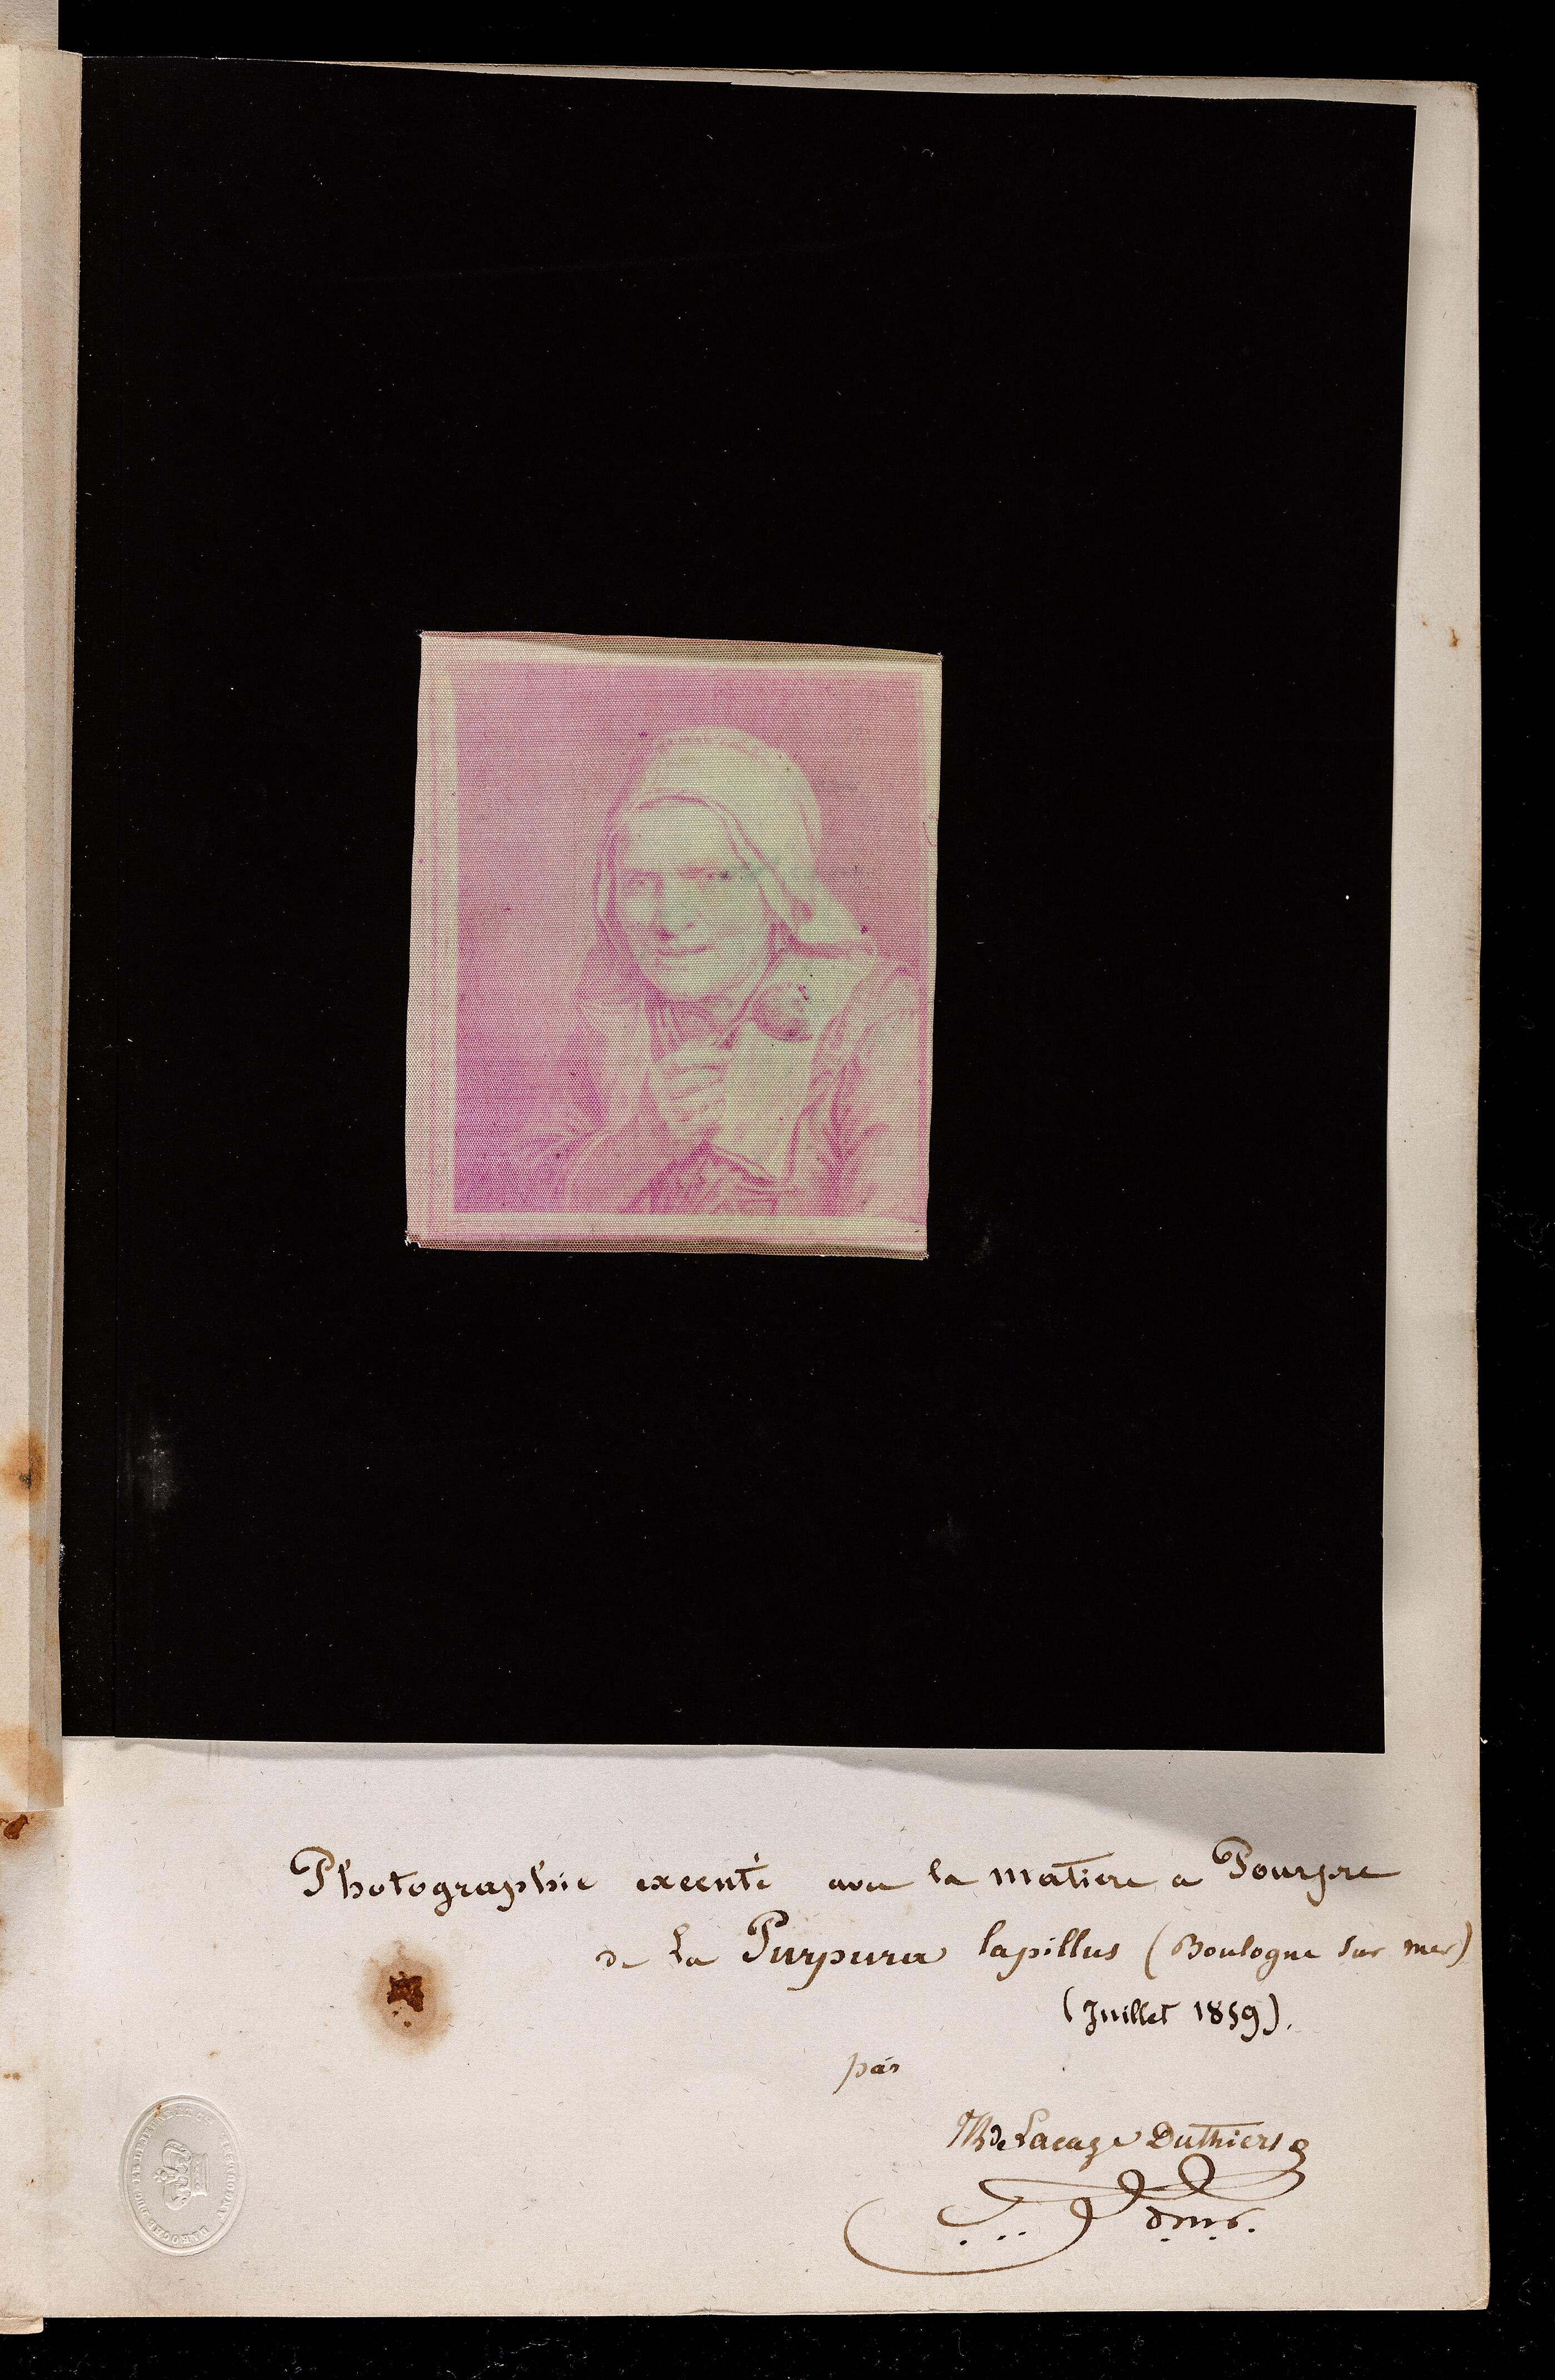 Photographie executé avec la matiere a Pourpre
de la Purpura lapillus (Boulogne sur mer)
(Juillet 1859).
par
de Lacaze Duthiers